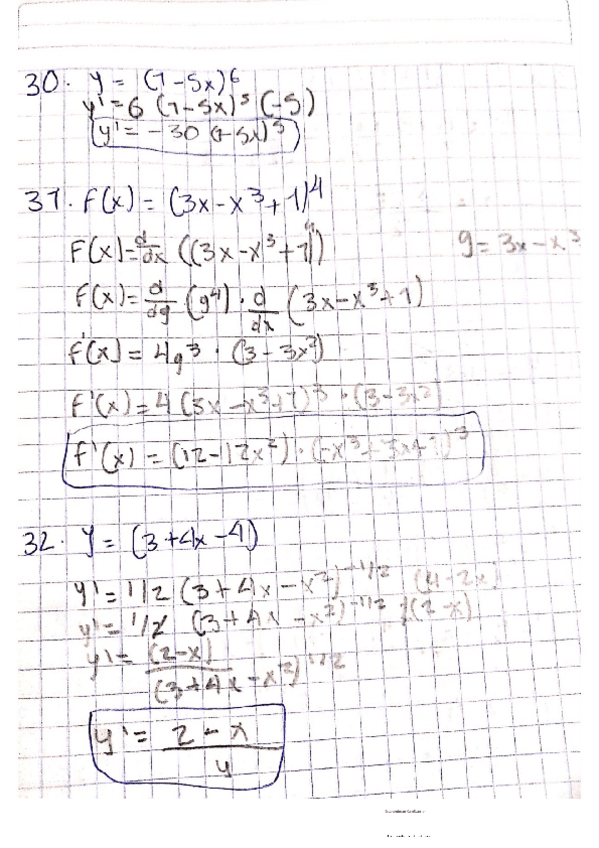 30. y = (1-5x)^6
y' = 6 (1-5x)^5 (-5)
y' = -30 (1-5x)^5
31. F(x) = (3x-x^3+1)^4
F(x) = d/dx ((3x-x^3+1)^4) g = 3x-x^3
F(x) = d/dg (g^4) · d/dx (3x-x^3+1)
f'(x) = 4g^3 · (3-3x^2)
f'(x) = 4(3x-x^3+1)^3 · (3-3x^2)
f'(x) = (12-12x^2) · (-x^3+3x+1)^3
32. y = (3+4x-4)
y' = 1/2 (3+4x-x^2)^-1/2 (4-2x)
y' = 1/2 (3+4x-x^2)^-1/2 2(2-x)
y' = (2-x) / (3+4x-x^2)^1/2
y' = 2-x / y